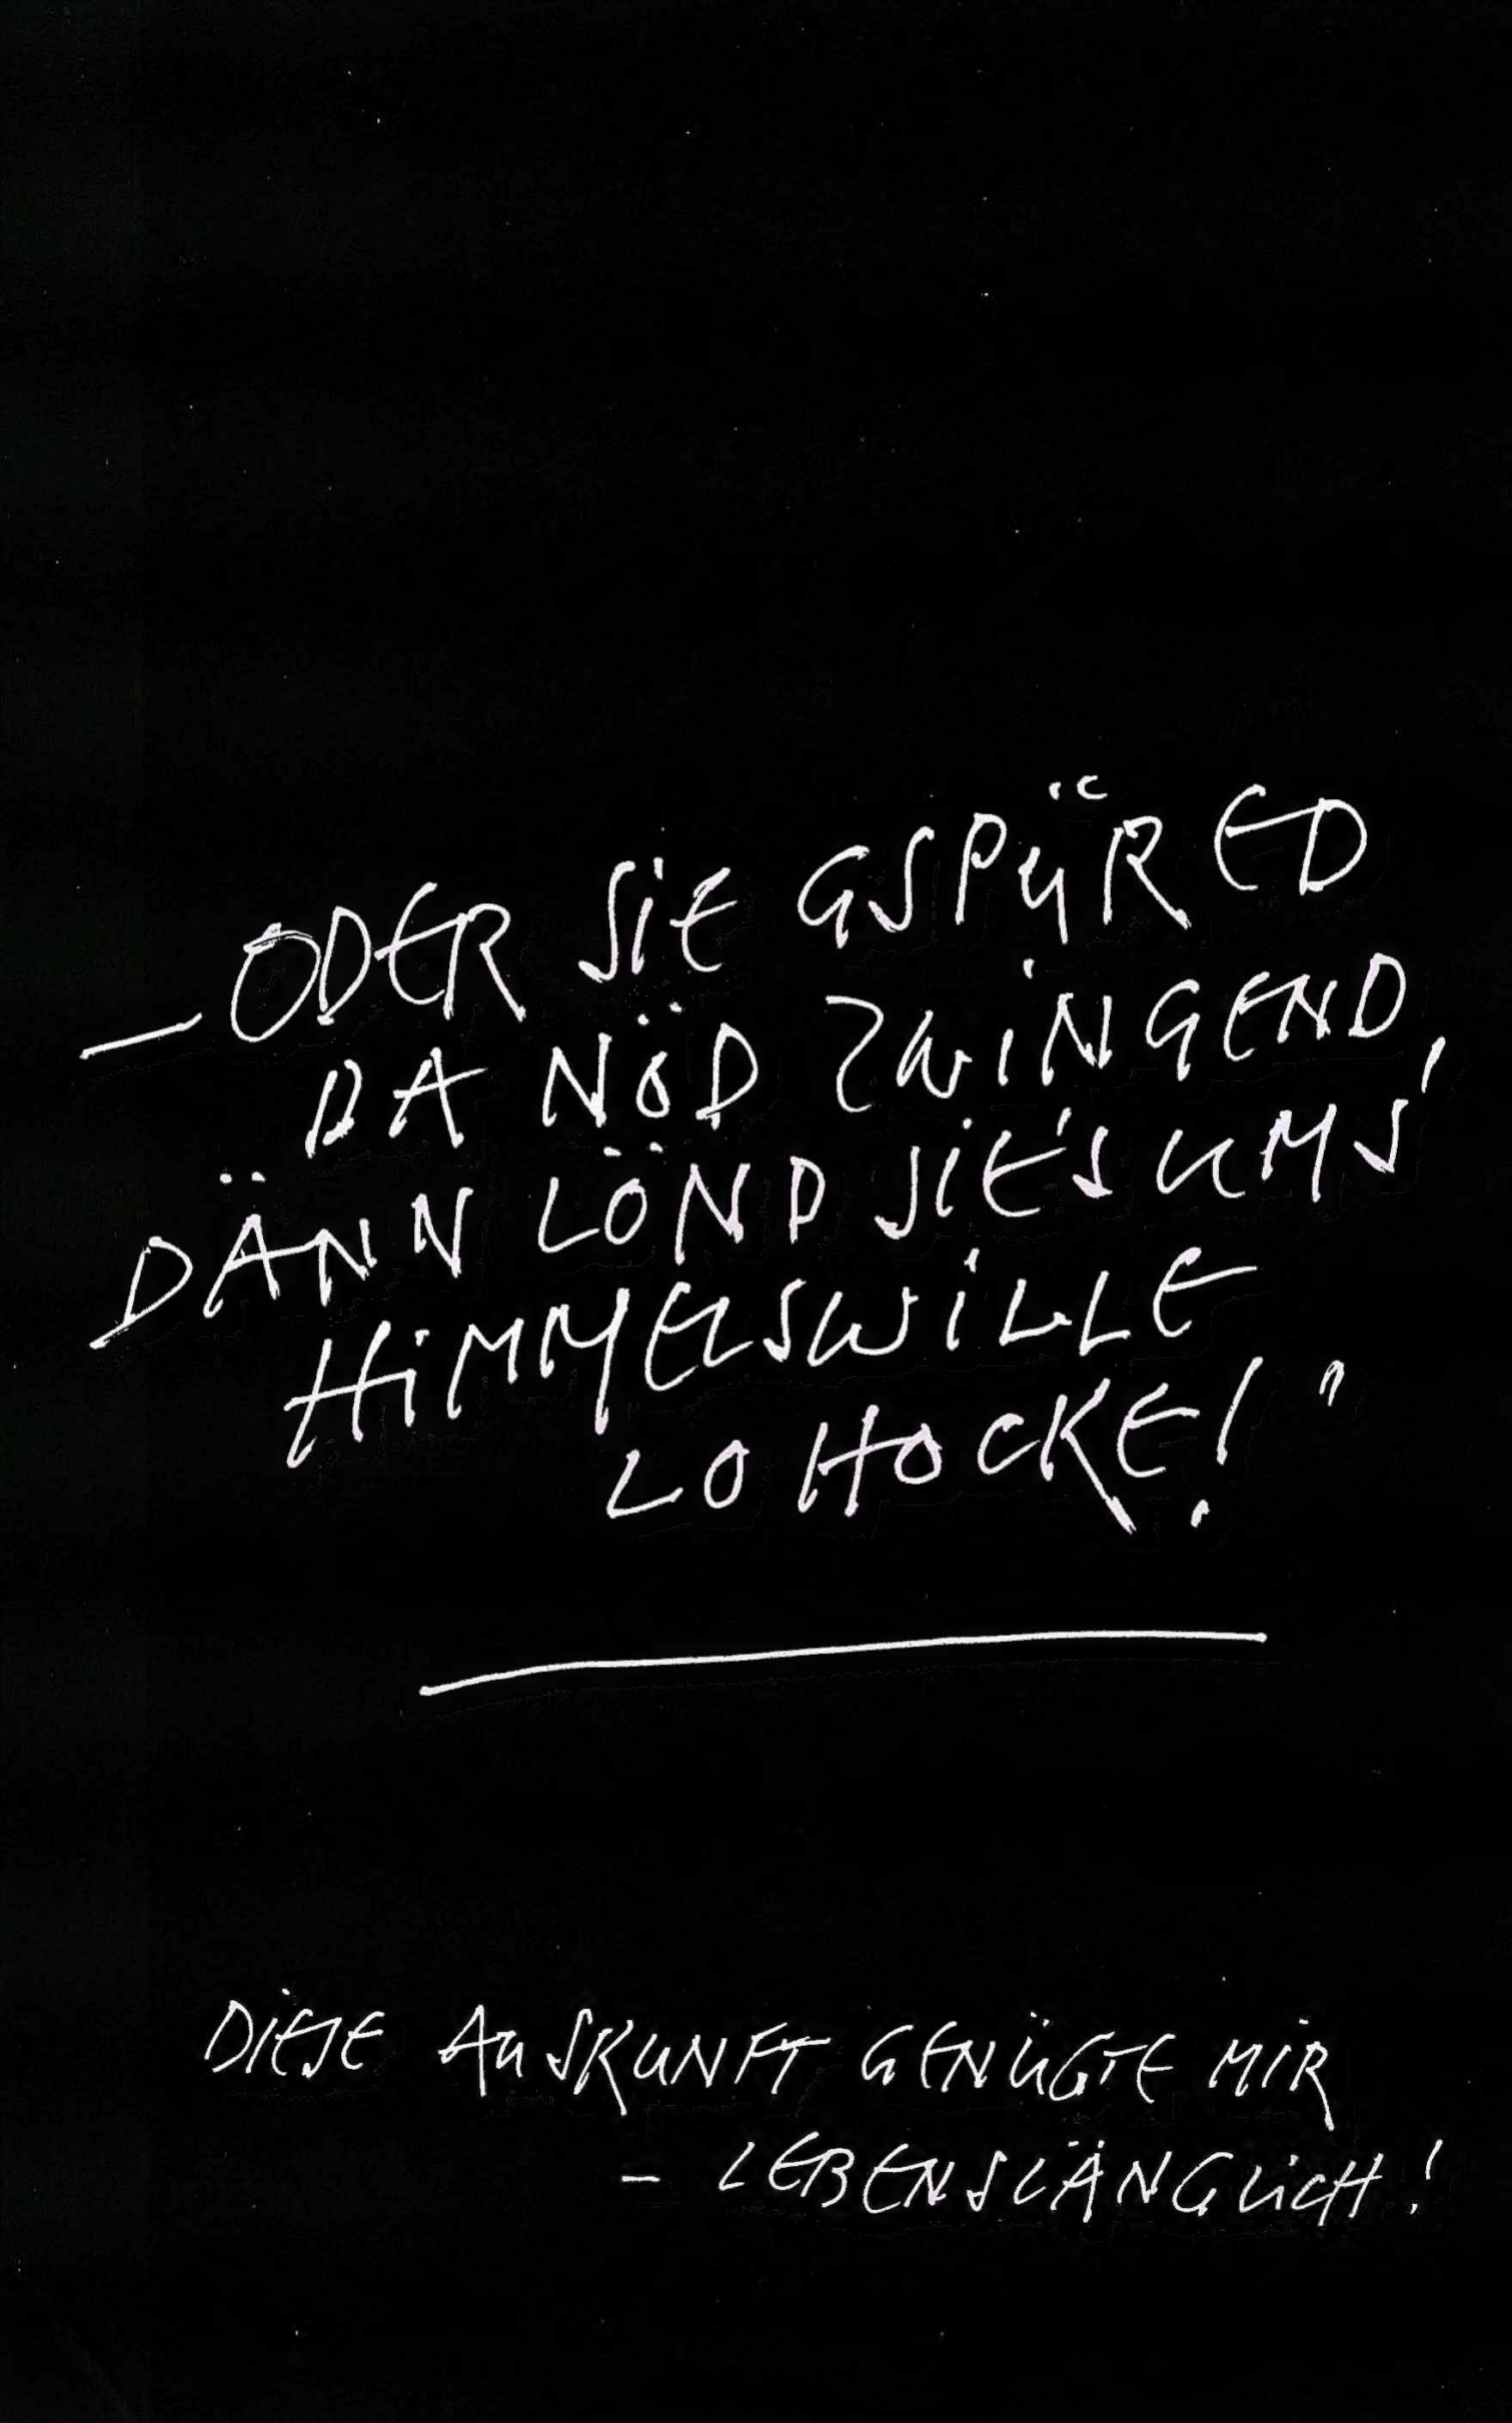 – ODER SIE GSPÜRED
DA NÖD ZWINGEND,
DÄNN LÖND SIE'S UMS
HIMMELSWILLE
LO HOCKE!"
DIESE AUSKUNFT GENÜGTE MIR
– LEBENSLÄNGLICH!